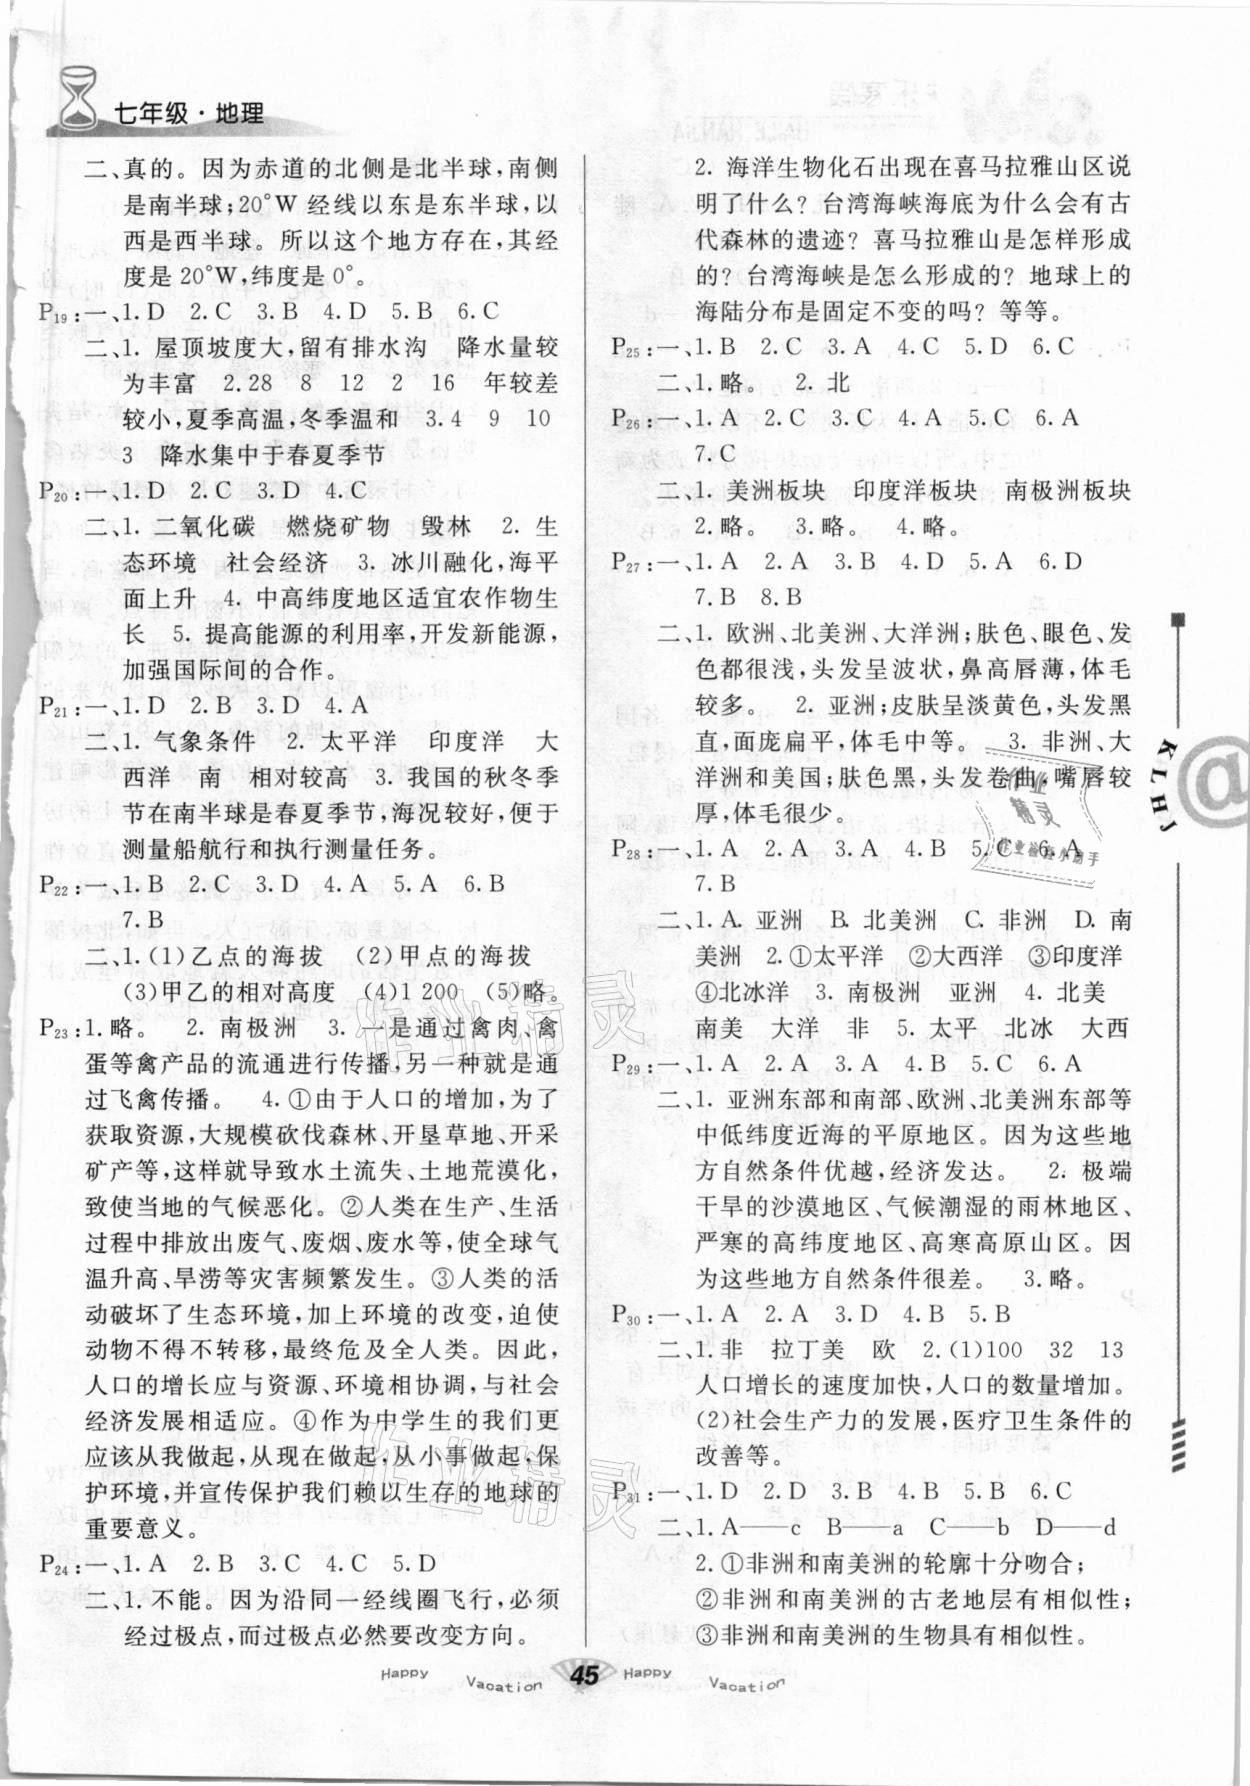 七年级·地理
二、真的。因为赤道的北侧是北半球,南侧
是南半球;20°W 经线以东是东半球,以
西是西半球。所以这个地方存在,其经
度是20°W,纬度是0°。
P19:一、1.D 2.C 3.B 4.D 5.B 6.C
二、1. 屋顶坡度大,留有排水沟 降水量较
为丰富 2.28 8 12 2 16 年较差
较小,夏季高温,冬季温和 3.4 9 10
3 降水集中于春夏季节
P20:一、1.D 2.C 3.D 4.C
二、1. 二氧化碳 燃烧矿物 毁林 2. 生
态环境 社会经济 3. 冰川融化,海平
面上升 4. 中高纬度地区适宜农作物生
长 5. 提高能源的利用率,开发新能源,
加强国际间的合作。
P21:一、1.D 2.B 3.D 4.A
二、1. 气象条件 2. 太平洋 印度洋 大
西洋 南 相对较高 3. 我国的秋冬季
节在南半球是春夏季节,海况较好,便于
测量船航行和执行测量任务。
P22:一、1.B 2.C 3.C 4.A 5.A 6.B
7.B
二、1.(1)乙点的海拔 (2)甲点的海拔
(3)甲乙的相对高度 (4)1 200 (5)略。
P23:1.略。 2. 南极洲 3. 一是通过禽肉、禽
蛋等禽产品的流通进行传播,另一种是通
过飞禽传播。 4.①由于人口的增加,为了
获取资源,大规模砍伐森林、开垦草地、开采
矿产等,这样就导致水土流失、土地荒漠化,
致使当地的气候恶化。②人类在生产、生活
过程中排放出废气、废烟、废水等,使全球气
温升高、旱涝等灾害频繁发生。③人类的活
动破坏了生态环境,加上环境的改变,迫使
动物不得不转移,最终危及全人类。因此,
人口的增长应与资源、环境相协调,与社会
经济发展相适应。④作为中学生的我们更
应该从我做起,从现在做起,从小事做起,保
护环境,并宣传保护我们赖以生存的地球的
重要意义。
P24:一、1.A 2.B 3.C 4.C 5.D
二、1. 不能。因为沿同一经线圈飞行,必须
经过极点,而过极点必然要改变方向。
2. 海洋生物化石出现在喜马拉雅山区说
明了什么?台湾海峡海底为什么会有古
代森林的遗迹?喜马拉雅山是怎样形成
的?台湾海峡是怎么形成的?地球上的
海陆分布是固定不变的吗?等等。
P25:一、1.B 2.C 3.A 4.C 5.D 6.C
二、1.略。 2. 北
P26:一、1.A 2.C 3.C 4.A 5.C 6.A
7.C
二、1. 美洲板块 印度洋板块 南极洲板块
2.略。 3.略。 4.略。
P27:一、1.A 2.A 3.B 4.D 5.A 6.D
7.B 8.B
二、1. 欧洲、北美洲、大洋洲;肤色、眼色、发
色都很浅,头发呈波状,鼻高唇薄,体毛
较多。 2. 亚洲;皮肤呈淡黄色,头发黑
直,面庞扁平,体毛中等。 3. 非洲、大
洋洲和美国;肤色黑,头发卷曲,嘴唇较
厚,体毛很少。
P28:一、1.A 2.A 3.A 4.B 5.A 6.A
7.B
二、1.A. 亚洲 B. 北美洲 C. 非洲 D. 南
美洲 2.①太平洋 ②大西洋 ③印度洋
④北冰洋 3. 南极洲 亚洲 4. 北美
南美 大洋 非 5. 太平 北冰 大西
P29:一、1.A 2.A 3.A 4.B 5.C 6.A
二、1. 亚洲东部和南部、欧洲、北美洲东部等
中低纬度近海的平原地区。因为这些地
方自然条件优越,经济发达。 2. 极端
干旱的沙漠地区、气候潮湿的雨林地区、
严寒的高纬度地区、高寒高原山区。因
为这些地方自然条件很差。 3.略。
P30:一、1.A 2.A 3.D 4.B 5.B
二、1. 非 拉丁美 欧 2.(1)100 32 13
人口增长的速度加快,人口的数量增加。
(2)社会生产力的发展,医疗卫生条件的
改善等。
P31:一、1.D 2.D 3.B 4.B 5.B 6.C
二、1.A——c B——a C——b D——d
2.①非洲和南美洲的轮廓十分吻合;
②非洲和南美洲的古老地层有相似性;
③非洲和南美洲的生物具有相似性。
KLHJ
Happy Vacation 45 Happy Vacation
作业精灵
作业精灵
作业精灵